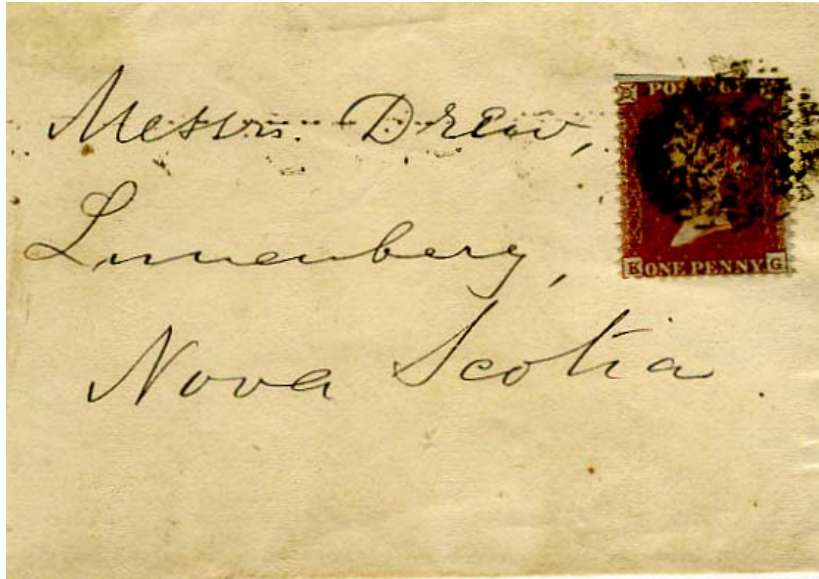 Messrs. Drew,
Lunenberg,
Nova Scotia.
POSTAGE
K ONE PENNY G